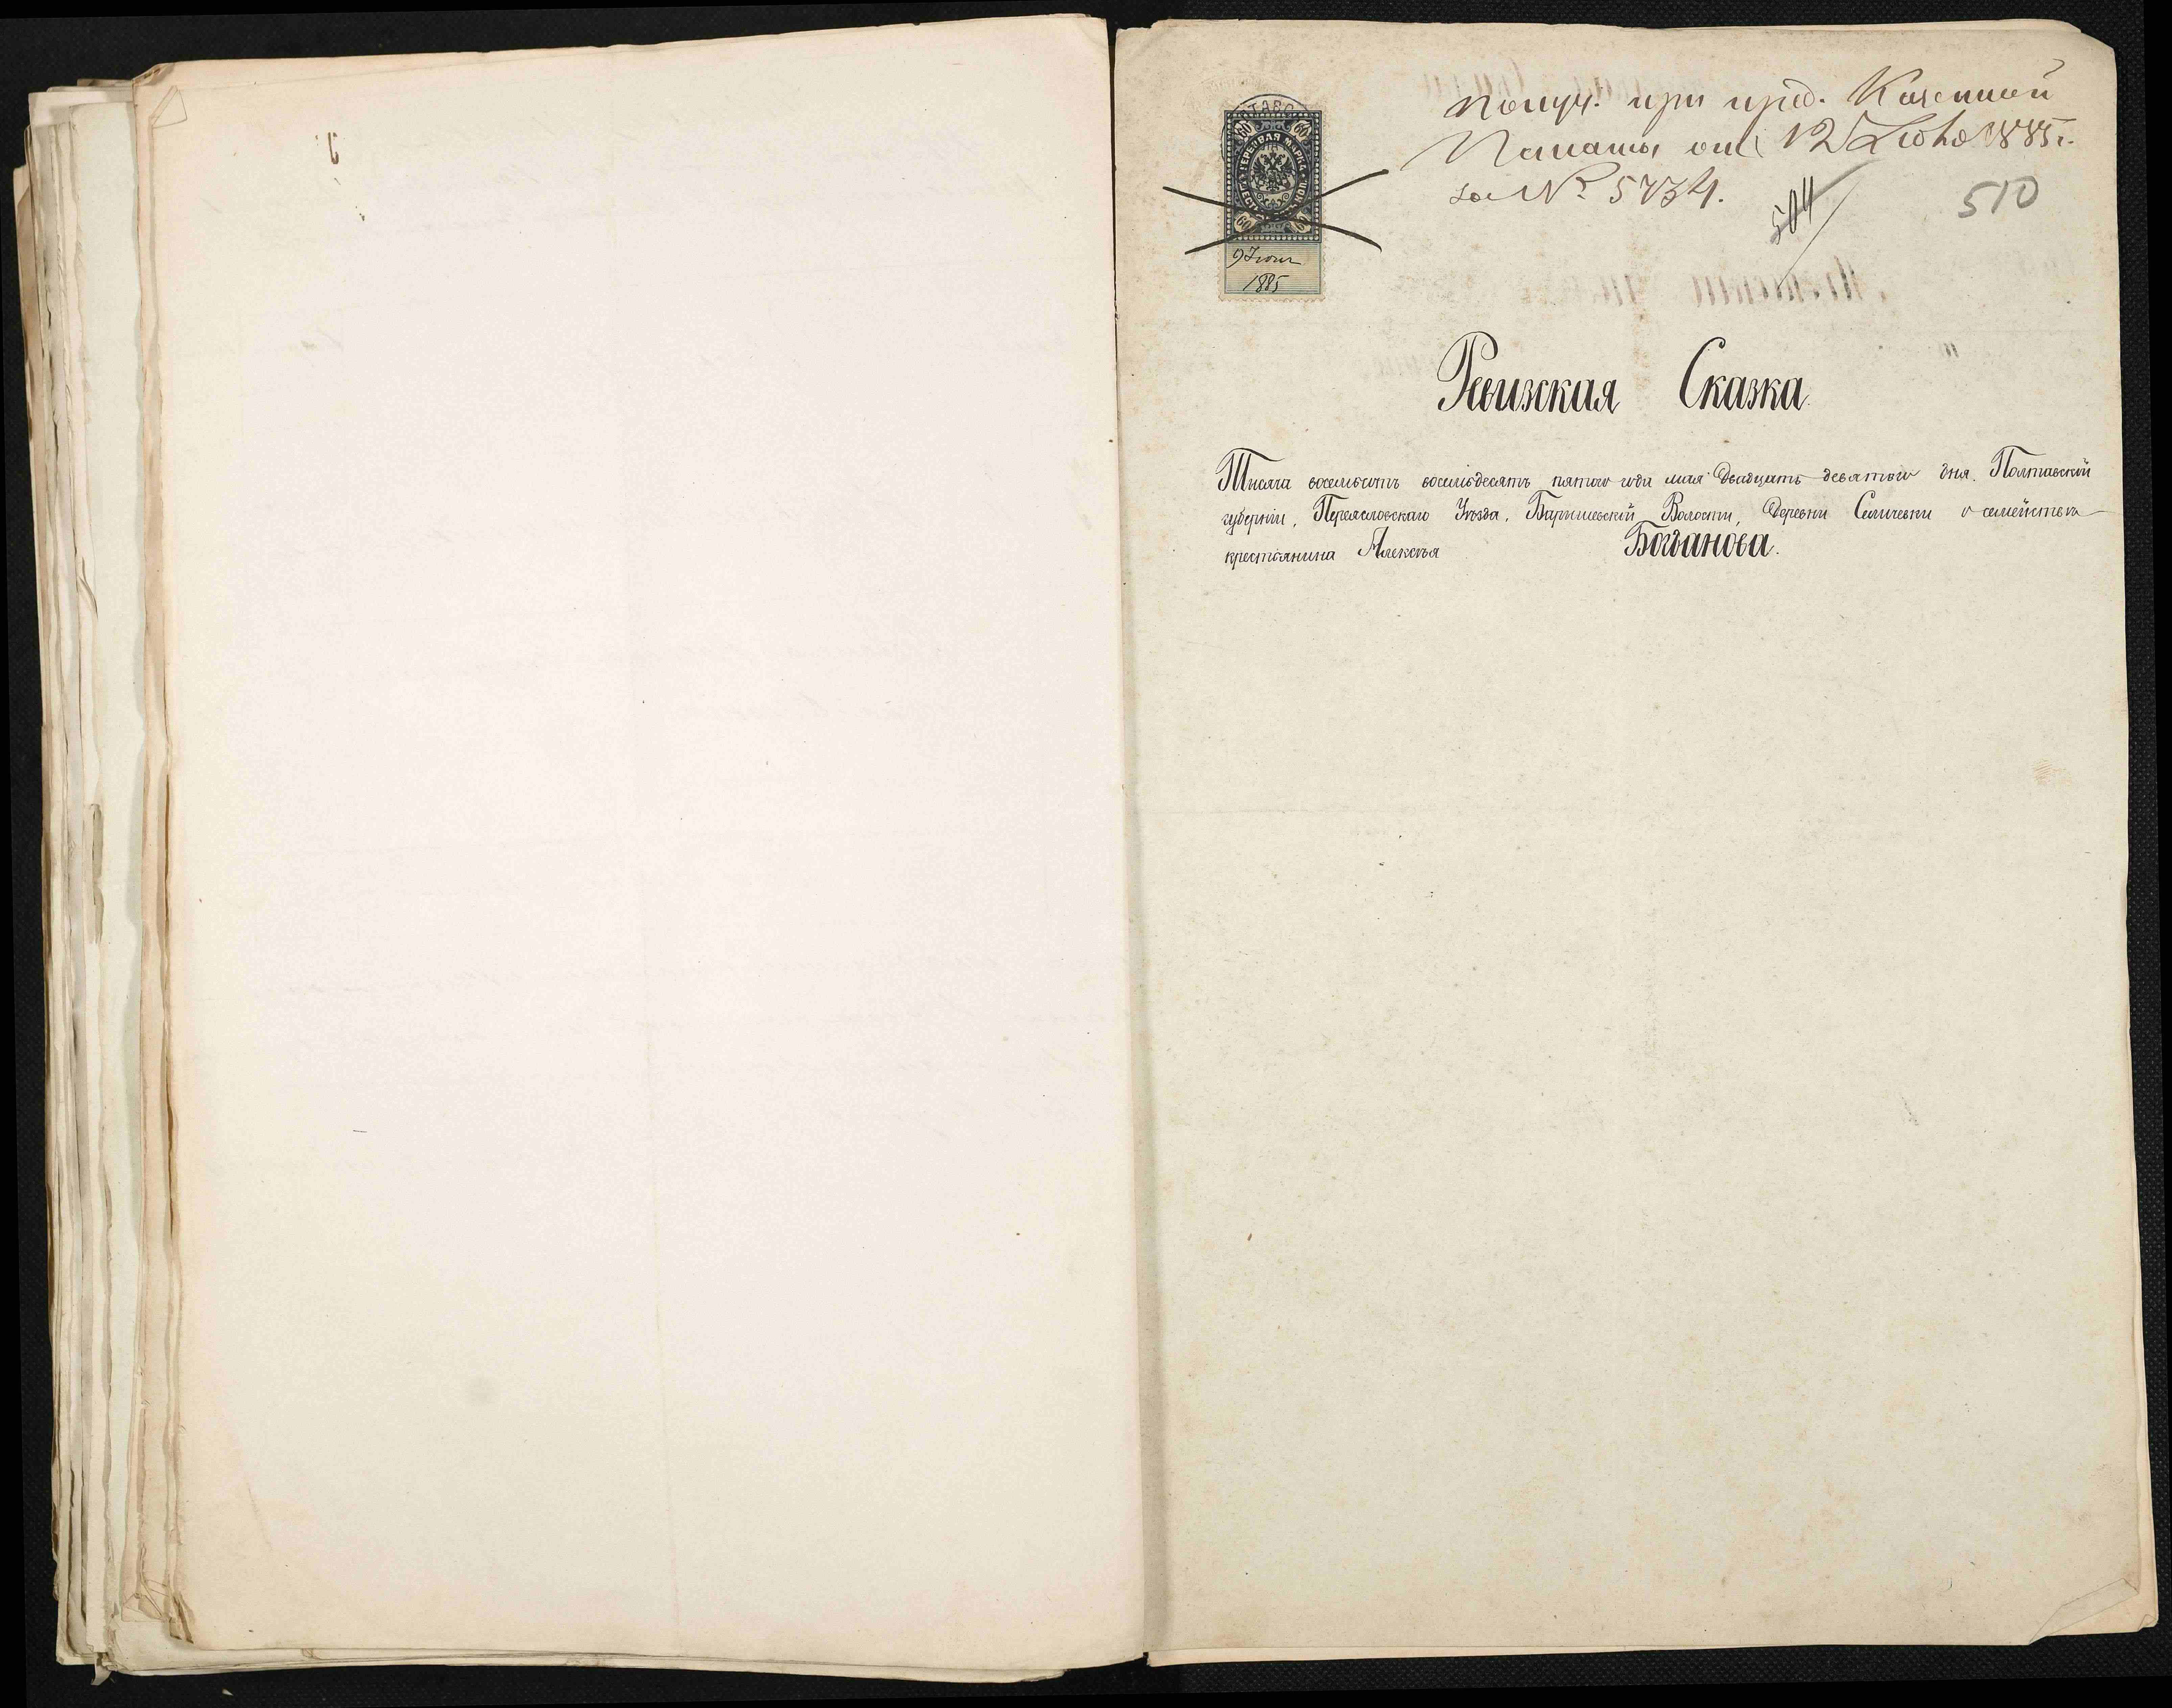 Получ. при пред. Казенной
Палаты отъ 12 Іюня 1885 г.
за № 5734.
504
510
ГЕРБОВАЯ МАРКА
60
9 Іюня
1885
Ревизская Сказка.
Тысяча восемьсотъ восемьдесятъ пятого года мая двадцать девятого дня. Полтавской
губерніи, Переяславскаго Уѣзда, Барышевской Волости, Деревни Селичевки о семействѣ
крестьянина Алексѣя Богданова.